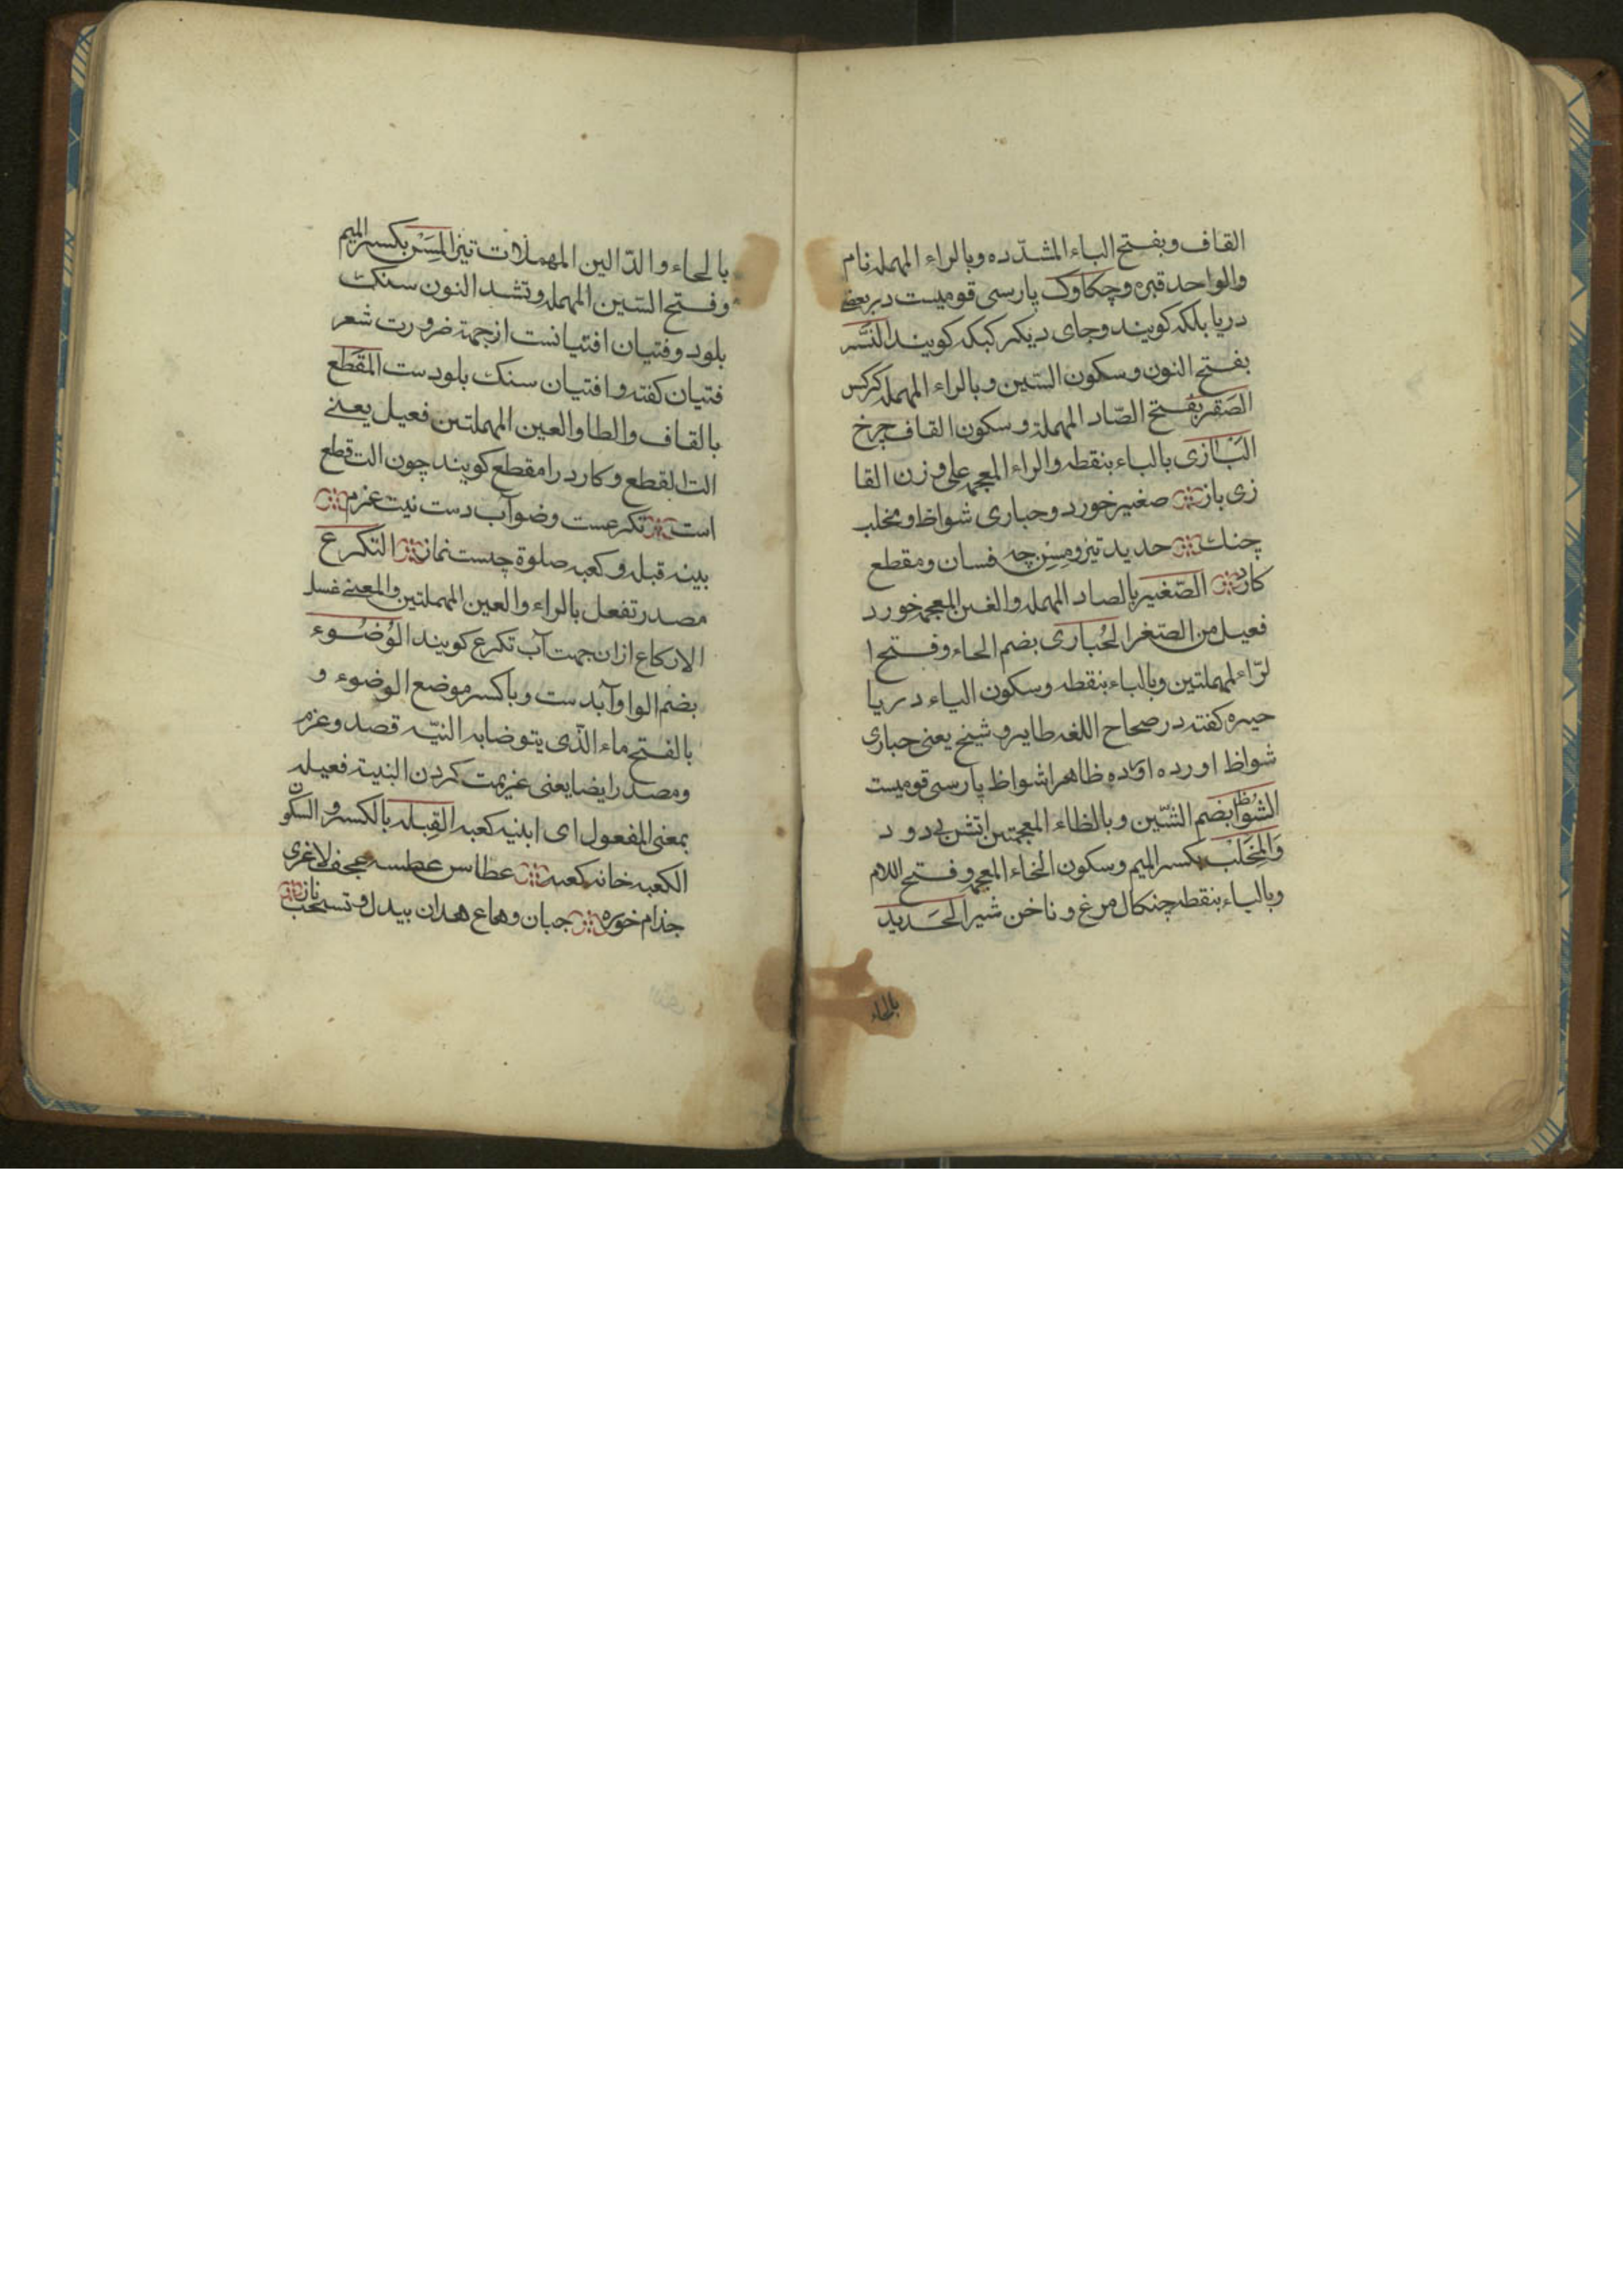 القاف وبفتح الباء المشدّده وبالراء المهمله نام
والواحد قبره وچکاوک پارسی قومیست دربعضے
دریا بلکه کویند وجای دیکر کبکه کویند النَّسْر
بفتح النون وسکون السّین وبالراء المهمله کرکس
الصَقْر بفتح الصّاد المهملة وسکون القاف چرخ
البَازی بالباء بنقطه والراء المعجمه علی وزن القا
زی باز صغیر خورد وحباری شواظ ومخلب
چنك حدید تیز ومِسِن چه فسان ومقطع
کارد الصّغیر بالصاد المهمله والغین المعجمه خورد
فعیل من الصّغر الحُباری بضم الحاء وفتح ا
لرّاء لمهملتین وبالباء بنقطه وسکون الیاء دریا
حیره کفته در صحاح اللغه طایر وشیخ یعنی حباری
شواظ اورده اورده ظاهرا شواظ پارسی قومیست
الشُوُاظ بضم الشّین وبالظاء المعجمتین اتش بی دود
وَالمِخْلَبْ بکسر المیم وسکون الخاء المعجمه وفتح اللام
وبالباء بنقطه چنکال مرغ وناخن شیر الحَدید
بالحاء
بالحاء والدّالین المهملات تیز المِسَنّ بکسر المیم
وفتح السّین المهمله وتشد النون سنکت
بلود وفتیان افتیانست ازجهة ضرورت شعر
فتیان کفته وافتیان سنک بلودست المقطع
بالقاف والطا والعین المهملتین فعیل یعنے
الت القطع وکارد را مقطع کویند چون الت قطع
است تکرعست وضو آب دست نیت عزم
بینه قبله وکعبه صلوة چیست نماز التکرع
مصدر تفعل بالراء والعین المهملتین والمعنے غسل
الارکاع ازان جهت آب تکرع کویند الوُضُوء
بضم الواو آبدست وباکسر موضع الوضوء و
بالفتح ماء الّذی یتوضا به النیّه قصد وعزم
ومصدر ایضا یعنی عزیمت کردن البنیة فعیله
بمعنی المفعول ای ابنیه کعبه القِبله بالکسر و السکون
الکعبه خانه کعبه عطاس عطسه عجف لاغری
جذام خوره جبان وهاع هدان بیدل و